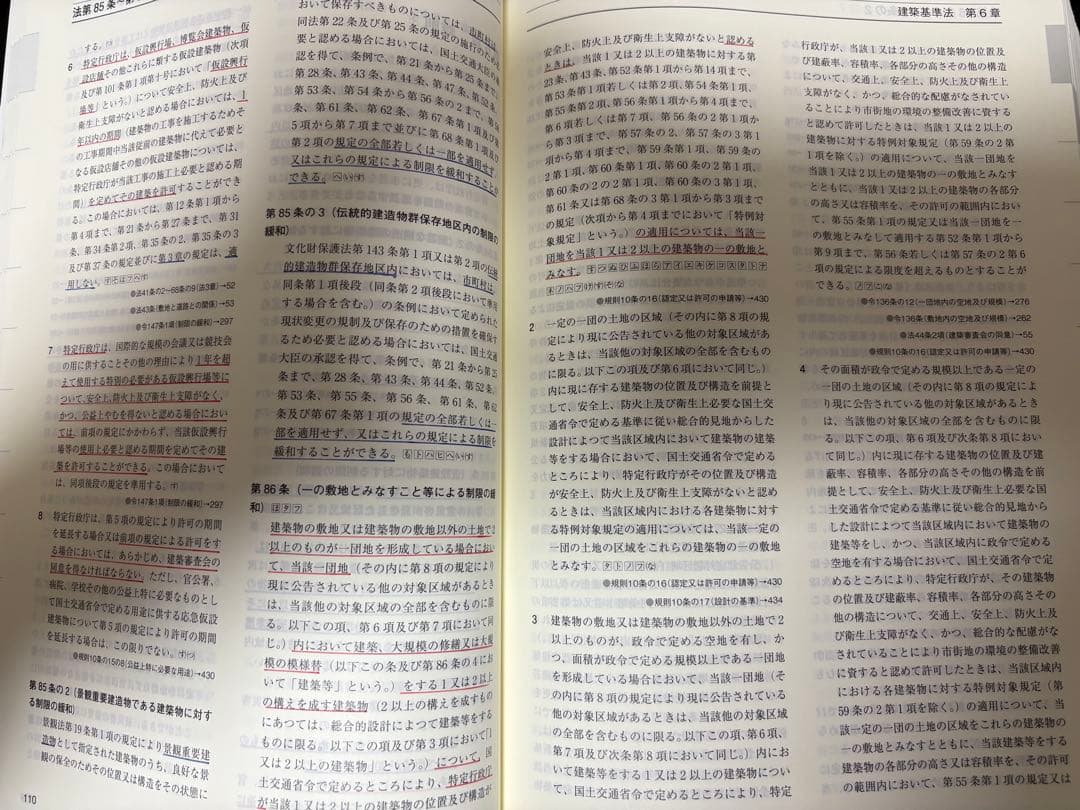 法第85条〜第
する。
6 特定行政庁は、仮設興行場、博覧会建築物、仮
設店舗その他これらに類する仮設建築物（次項
及び第101条第1項第十号において「仮設興行
場等」という。）について安全上、防火上及び
衛生上支障がないと認める場合においては、1
年以内の期間（建築物の工事を施工するためそ
の工事期間中当該従前の建築物に代えて必要と
なる仮設店舗その他の仮設建築物については、
特定行政庁が当該工事の施工上必要と認める期
間）を定めてその建築を許可することができ
る。この場合においては、第12条第1項から
第4項まで、第21条から第27条まで、第31
条、第34条第2項、第35条の2、第35条の3
及び第37条の規定並びに第3章の規定は、適
用しない。
●法41条の2〜68条の9（法3章）→52
●法43条（敷地と道路との関係）→53
●令147条1項（制限の緩和）→297
7 特定行政庁は、国際的な規模の会議又は競技会
の用に供することその他の理由により1年を超
えて使用する特別の必要がある仮設興行場等に
ついて、安全上、防火上及び衛生上支障がなく、
かつ、公益上やむを得ないと認める場合におい
ては、前項の規定にかかわらず、当該仮設興行
場等の使用上必要と認める期間を定めてその建
築を許可することができる。この場合において
は、同項後段の規定を準用する。
●令147条1項（制限の緩和）→297
8 特定行政庁は、第5項の規定により許可の期間
を延長する場合又は前項の規定による許可をす
る場合においては、あらかじめ、建築審査会の
同意を得なければならない。ただし、官公署、
病院、学校その他の公益上特に必要なものとし
て国土交通省令で定める用途に供する応急仮設
建築物について第5項の規定により許可の期間
を延長する場合は、この限りでない。
●規則10条の15の8（公益上特に必要な用途）→430
第85条の2（景観重要建造物である建築物に対す
る制限の緩和）
景観法第19条第1項の規定により景観重要建
造物として指定された建築物のうち、良好な景
観の保全のためその位置又は構造をその状態に
110
おいて保存すべきものについては、市町村は、
同法第22条及び第25条の規定の施行のため
要と認める場合においては、国土交通大臣の承
認を得て、条例で、第21条から第25条まで、
第28条、第43条、第44条、第47条、第52条、
第53条、第54条から第56条の2まで、第58
条、第61条、第62条、第67条第1項及び第
5項から第7項まで並びに第68条第1項及び
第2項の規定の全部若しくは一部を適用せず、
又はこれらの規定による制限を緩和することが
できる。
第85条の3（伝統的建造物群保存地区内の制限の
緩和）
文化財保護法第143条第1項又は第2項の伝統
的建造物群保存地区内においては、市町村は、
同条第1項後段（同条第2項後段において準用
する場合を含む。）の条例において定められた
現状変更の規制及び保存のための措置を確保す
るため必要と認める場合においては、国土交通
大臣の承認を得て、条例で、第21条から第25
条まで、第28条、第43条、第44条、第52条、
第53条、第55条、第56条、第61条、第62
条及び第67条第1項の規定の全部若しくは一
部を適用せず、又はこれらの規定による制限を
緩和することができる。
第86条（一の敷地とみなすこと等による制限の緩
和）
建築物の敷地又は建築物の敷地以外の土地で2
以上のものが一団地を形成している場合におい
て、当該一団地（その内に第8項の規定により
現に公告されている他の対象区域があるときは
は、当該他の対象区域の全部を含むものに限
る。以下この項、第6項及び第7項において同
じ。）内において建築、大規模の修繕又は大規
模の模様替（以下この条及び第86条の4にお
いて「建築等」という。）をする1又は2以上
の構えを成す建築物（2以上の構えを成すもの
にあつては、総合的設計によつて建築等をする
ものに限る。以下この項及び第3項において「1
又は2以上の建築物」という。）について、国
土交通省令で定めるところにより、特定行政庁
が当該1又は2以上の建築物の位置及び構造が
建築基準法 第6章
安全上、防火上及び衛生上支障がないと認める
ときは、当該1又は2以上の建築物に対する第
23条、第43条、第52条第1項から第14項まで、
第53条第1項若しくは第2項、第54条第1項、
第55条第2項、第56条第1項から第4項まで、
第6項若しくは第7項、第56条の2第1項か
ら第3項まで、第57条の2、第57条の3第1
項から第4項まで、第59条第1項、第59条の
2第1項、第60条第1項、第60条の2第1項、
第60条の2の2第1項、第60条の3第1項、
第61条又は第68条の3第1項から第3項まで
の規定（次項から第4項までにおいて「特例対
象規定」という。）の適用については、当該一
団地を当該1又は2以上の建築物の一の敷地と
みなす。
●規則10条の16（認定又は許可の申請等）→430
2 一定の一団の土地の区域（その内に第8項の規
定により現に公告されている他の対象区域があ
るときは、当該他の対象区域の全部を含むもの
に限る。以下この項及び第6項において同じ。）
内に現に存する建築物の位置及び構造を前提と
して、安全上、防火上及び衛生上必要な国土交
通省令で定める基準に従い総合的見地からした
設計によつて当該区域内において建築物の建築
等をする場合において、国土交通省令で定める
ところにより、特定行政庁がその位置及び構造
が安全上、防火上及び衛生上支障がないと認め
るときは、当該区域内における各建築物に対す
る特例対象規定の適用については、当該一定の
一団の土地の区域をこれらの建築物の一の敷地
とみなす。
●規則10条の16（認定又は許可の申請等）→430
●規則10条の17（設計の基準）→434
3 建築物の敷地又は建築物の敷地以外の土地で2
以上のものが、政令で定める空地を有し、か
つ、面積が政令で定める規模以上である一団地
を形成している場合において、当該一団地（そ
の内に第8項の規定により現に公告されている
他の対象区域があるときは、当該他の対象区域
の全部を含むものに限る。以下この項、第6項、
第7項及び次条第8項において同じ。）内にお
いて建築等をする1又は2以上の建築物につい
て、国土交通省令で定めるところにより、特定
行政庁が、当該1又は2以上の建築物の位置及
び建蔽率、容積率、各部分の高さその他の構造
について、交通上、安全上、防火上及び衛生上
支障がなく、かつ、総合的な配慮がなされてい
ることにより市街地の環境の整備改善に資する
と認めて許可したときは、当該1又は2以上の
建築物に対する特例対象規定（第59条の2第
1項を除く。）の適用については、当該一団地を
当該1又は2以上の建築物の一の敷地とみなす
とともに、当該1又は2以上の建築物の各部分
の高さ又は容積率を、その許可の範囲内におい
て、第55条第1項の規定又は当該一団地を一
の敷地とみなして適用する第52条第1項から
第9項まで、第56条若しくは第57条の2第6
項の規定による限度を超えるものとすることが
できる。
●令136条の12（一団地内の空地及び規模）→276
●令136条（敷地内の空地及び規模）→262
●法44条2項（建築審査会の同意）→55
●規則10条の16（認定又は許可の申請等）→430
4 その面積が政令で定める規模以上である一定の
一団の土地の区域（その内に第8項の規定によ
り現に公告されている他の対象区域があるとき
は、当該他の対象区域の全部を含むものに限
る。以下この項、第6項及び次条第8項におい
て同じ。）内に現に存する建築物の位置及び建
蔽率、容積率、各部分の高さその他の構造を前
提として、安全上、防火上及び衛生上必要な国
土交通省令で定める基準に従い総合的見地から
した設計によつて当該区域内において建築物の
建築等をし、かつ、当該区域内に政令で定める
空地を有する場合において、国土交通省令で定
めるところにより、特定行政庁が、その建築物
の位置及び建蔽率、容積率、各部分の高さその
他の構造について、交通上、安全上、防火上及
び衛生上支障がなく、かつ、総合的な配慮がな
されていることにより市街地の環境の整備改善
に資すると認めて許可したときは、当該区域内
における各建築物に対する特例対象規定（第
59条の2第1項を除く。）の適用については、当
該一定の一団の土地の区域をこれらの建築物の
一の敷地とみなすとともに、当該建築等をする
建築物の各部分の高さ又は容積率を、その許可
の範囲内において、第55条第1項の規定又は